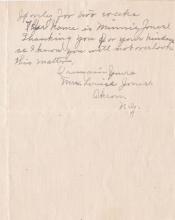 if only for two weeks
Her Name is Minnie Jones
Thanking you for your kindness
as I know you will not overlook
this matter,
I remain Yours
Mrs. Louise Jones
Akron
N.Y.